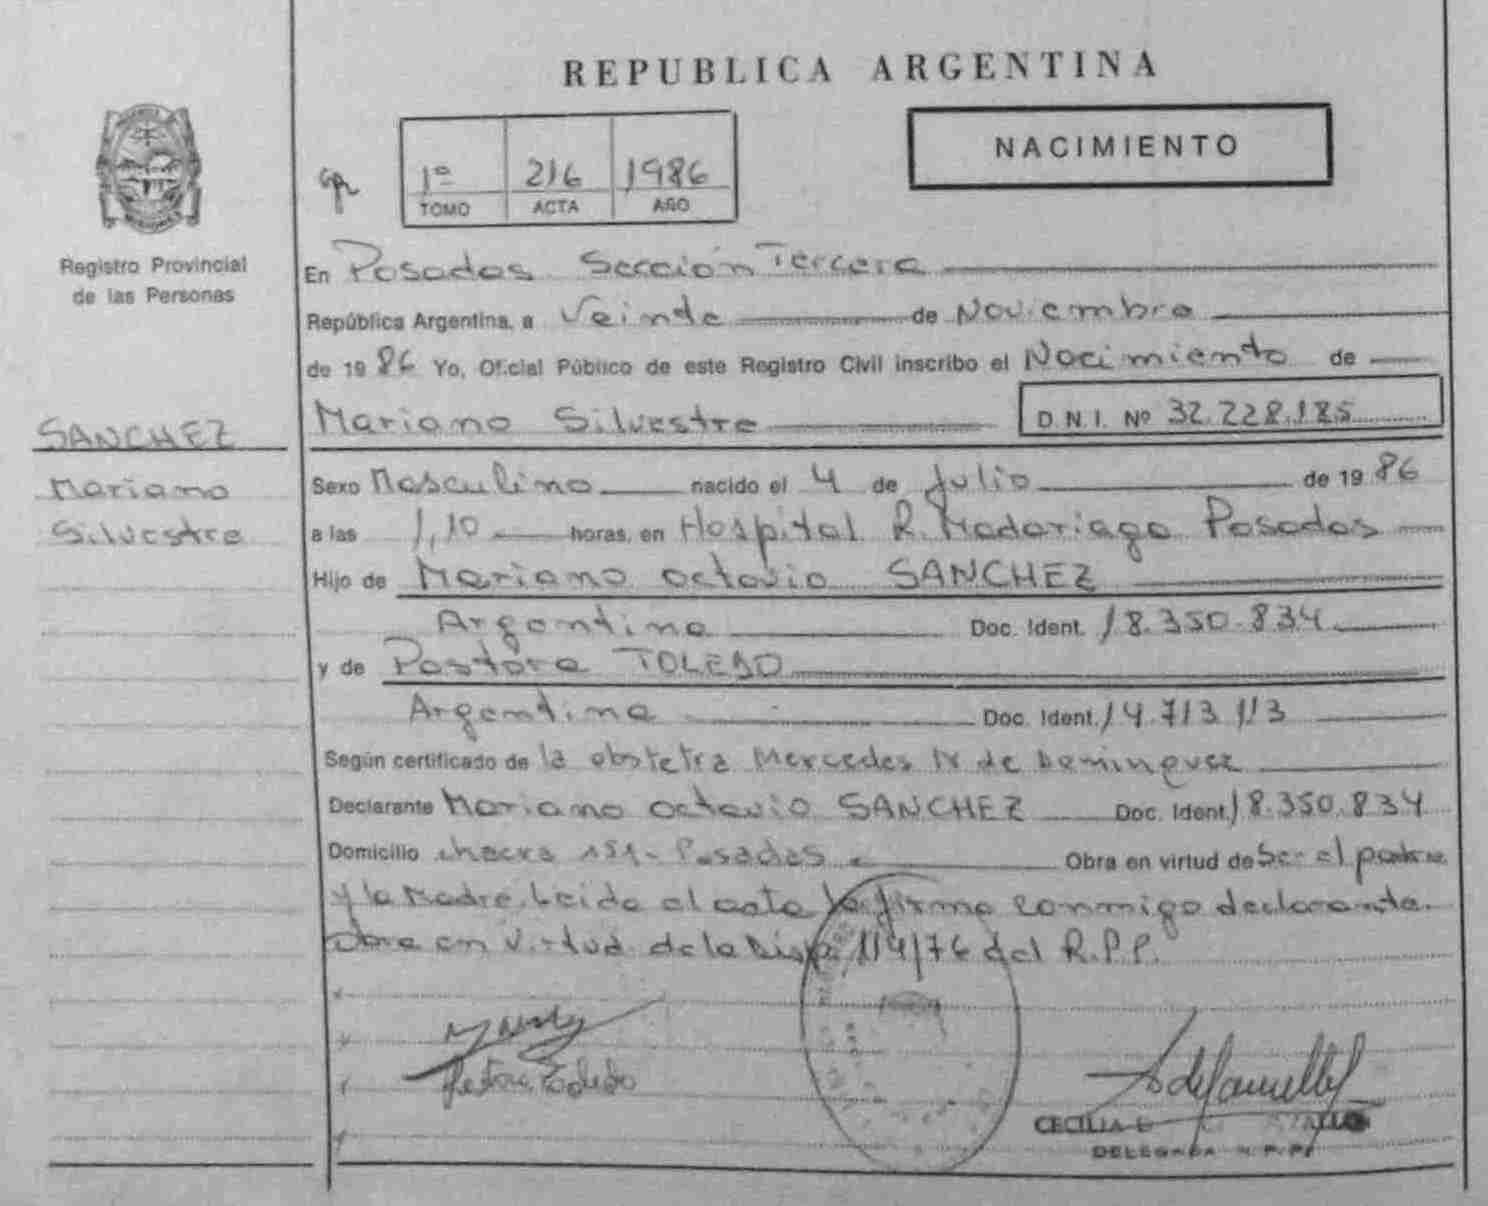 REPUBLICA ARGENTINA
NACIMIENTO
1º 216 1986
TOMO ACTA AÑO
Registro Provincial
de las Personas
En Posadas Sección Tercera
República Argentina, a Veinte de Noviembre
de 1986 Yo, Oficial Público de este Registro Civil inscribo el Nacimiento de
Mariano Silvestre D.N.I. Nº 32.228.185
SANCHEZ
Mariano
Silvestre
Sexo Masculino nacido el 4 de Julio de 1986
a las 1,10 horas, en Hospital R. Madariaga Posadas
Hijo de Mariano Octavio SANCHEZ
Argentina Doc. Ident. 18.350.834
y de Pastora TOLEDO
Argentina Doc. Ident. 14.713.113
Según certificado de la obstetra Mercedes de Dominguez
Declarante Mariano Octavio SANCHEZ Doc. Ident. 18.350.834
Domicilio chacra 151- Posadas Obra en virtud de Ser el padre
y la Madre. Leida el acta la firma conmigo declarante.
Obra en virtud de la Disp. 114/76 del R.P.P.
Pastora Toledo
CECILIA
DELEGADA R.P.P.